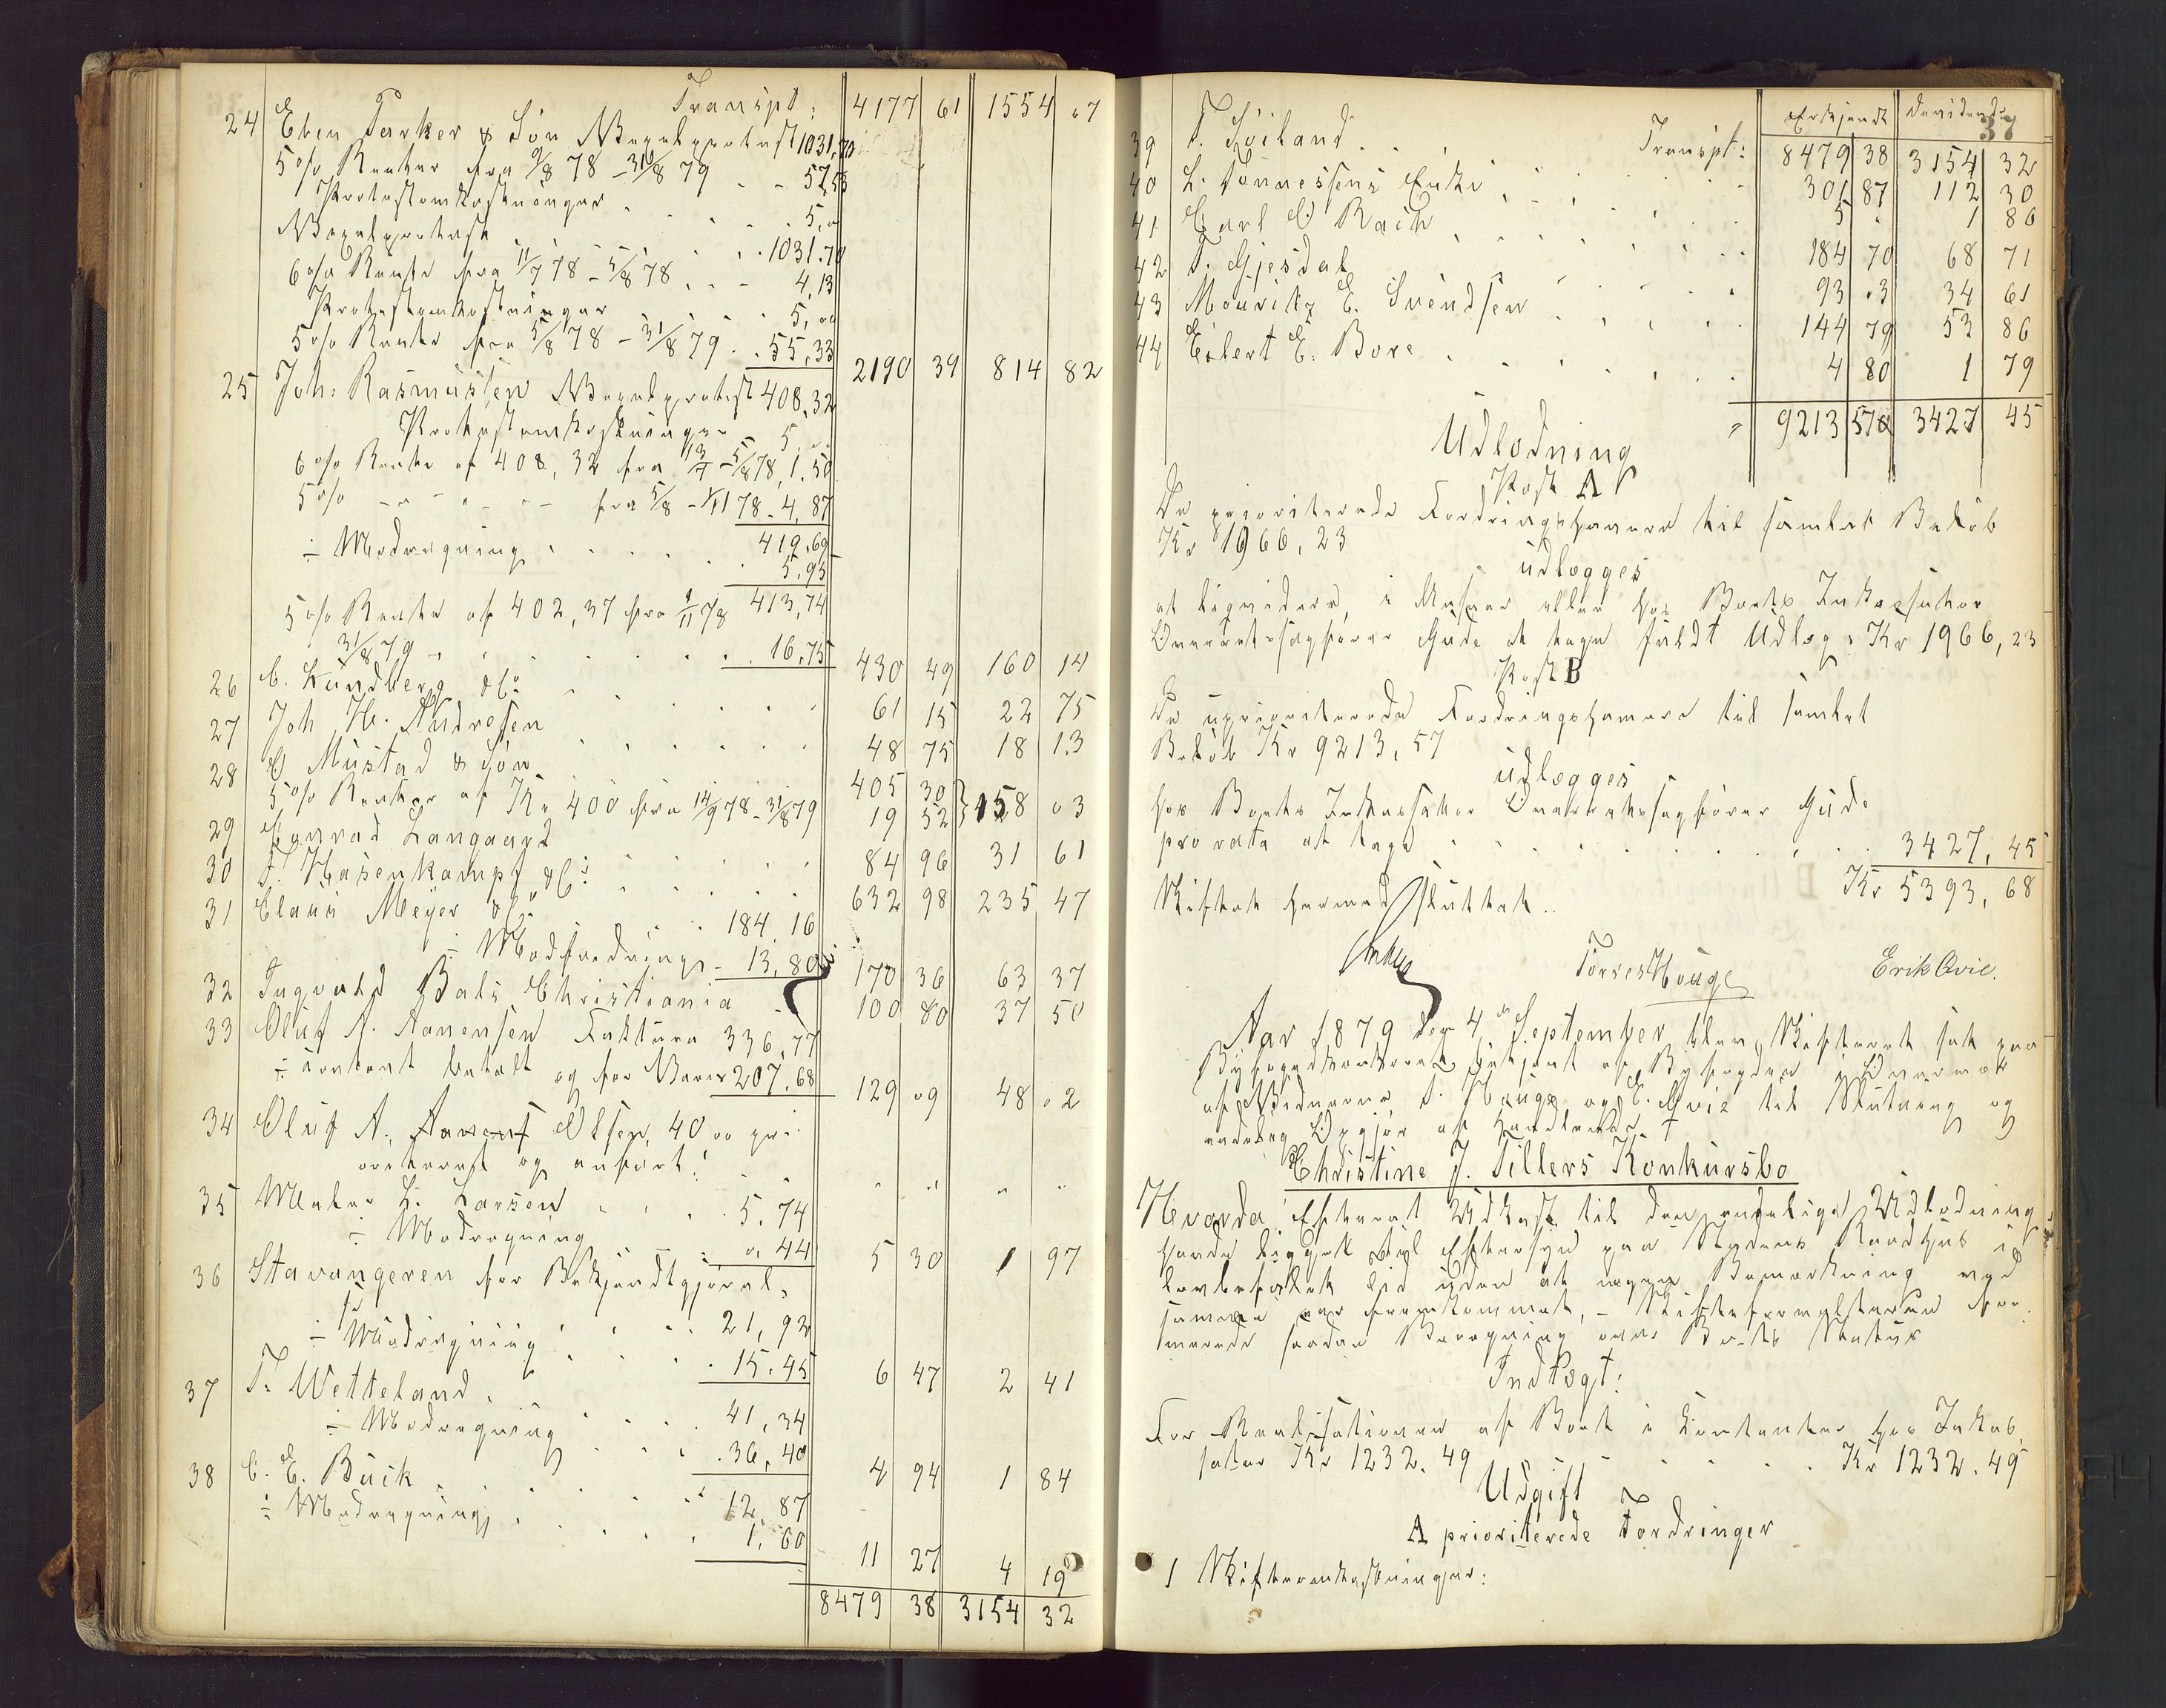 Transpt: 4177 61 1554 07
24 Eben Parker & Søn Vexelprotest 1031,70
5 o/o Renter fra 9/8 78 – 31/8 79 - - 57,53
Protestomkostninger . . 5,00
Vexelprotest . . . 1031.70
6 o/o Rente fra 11/7 78 – 5/8 78 . - - 4,13
Protestomkostninger . . 5,00
5 o/o Rente fra 5/8 78 – 31/8 79 . . 55,33 2190 39 814 82
25 Joh: Rasmussen Vexelprotest 408,32
Protestomkostninger - 5, 00
6 o/o Rente af 408,32 fra 13/7 – 5/8 78, 1.50
5 o/o - " - " - - fra 5/8 – 1/11 78 - 4,87
419.69
÷ Modregning . . . . . 5,95
413,74
5 o/o Rente af 402,37 fra 1/11 78
31/8 79 - . . . . . 16,75 430 49 160 14
26 C. Lundberg & Co: . . . . 61 15 22 75
27 Joh H. Andresen . . . . . 48 75 18 13
28 O Mustad & Søn . . . . . 405 30
5 o/o Renter af Kr 400 fra 14/9 78 – 31/8 79 19 52 } 158 03
29 Konrad Langaard . . . . . 84 96 31 61
30 F. Hasenkampf & Co: . . . . 632 98 235 47
31 Claus Meyer & Co . . 184.16
÷ Modfordring - 13,80 170 36 63 37
32 Ingvald Bals Christiania - 100 80 37 50
33 Oluf A. Aanensen Faktura 336,77
÷ contant betalt og for Varer 207.68 129 09 48 02
34 Oluf A. Olsen, 40 00 pri-
oriteret og anført! - - " " " "
35 Maler L. Larsen . . . 5.74
÷ Modregning - : 0,44 5 30 1 97
36 Stavangeren for Bekjendtgjørel-
se . . . . . 21,92
÷ Modregning . . . . 15.45 6 47 2 41
37 T. Wetteland . . . . 41,34
÷ Modregning . . . . 36,40 4 94 1 84
38 C. E. Buck . . . . . 12,87
÷ Modregning . . . . 1,60 11 27 4 19
8479 38 3154 32
37
Erkjendt Dividende
Transpt: 8479 38 3154 32
39 T. Soiland . . . . . 301 87 112 30
40 L. Tønnessens Enke . . . . 5 . 1 86
41 Carl O Rach . . . . . 184 70 68 71
42 T. Gjesdal . . . . . 93 03 34 61
43 Mouritz E. Svendsen . . . . 144 79 53 86
44 Eilert E. Bore . . . . . 4 80 1 79
9213 57 3427 45
Udlodning
Post A
De prioriterede Fordringshavere til samlet Beløb
Kr 1966,23
udlægges
at liqvidere, i Masser eller hos Boets Inkassator
Overretssagfører Gude at tage fuldt Udlæg: Kr 1966,23
Post B
De uprioriterede Fordringshavere til samlet
Beløb Kr 9213,57
udlægges
hos Boets Inkassator Overretssagfører Gude
pro rata at tage . . . . . . . 3427,45
Kr 5393,68
Skiftet hermed sluttet.
Torres Houge Erik Qvie.
Aar 1879 den 4de September blev Skifteret sat paa
Byfogedkontoret betjent af Byfogden i Overvær
af Vidnerne T. Houge og E. Qvie til Slutning og
endelig Opgjør af Handlende
Christine J. Tillers Konkursbo
Hvorda Efterat Udkast til den endelige Udlodning
havde ligget til Eftersyn paa Stedets Raadhus i
lovbefalet Tid uden at nogen Bemærkning ved
samme var fremkommet, – Skifteforvalteren for-
merede saadan Beregning over Boets Status
Indtægt:
For Realisationen af Boet i Kontanter hos Inkas-
sator Kr 1232.49 - - . . . Kr 1232.49
Udgift
A prioriterede Fordringer
1 Skifteomkostninger: